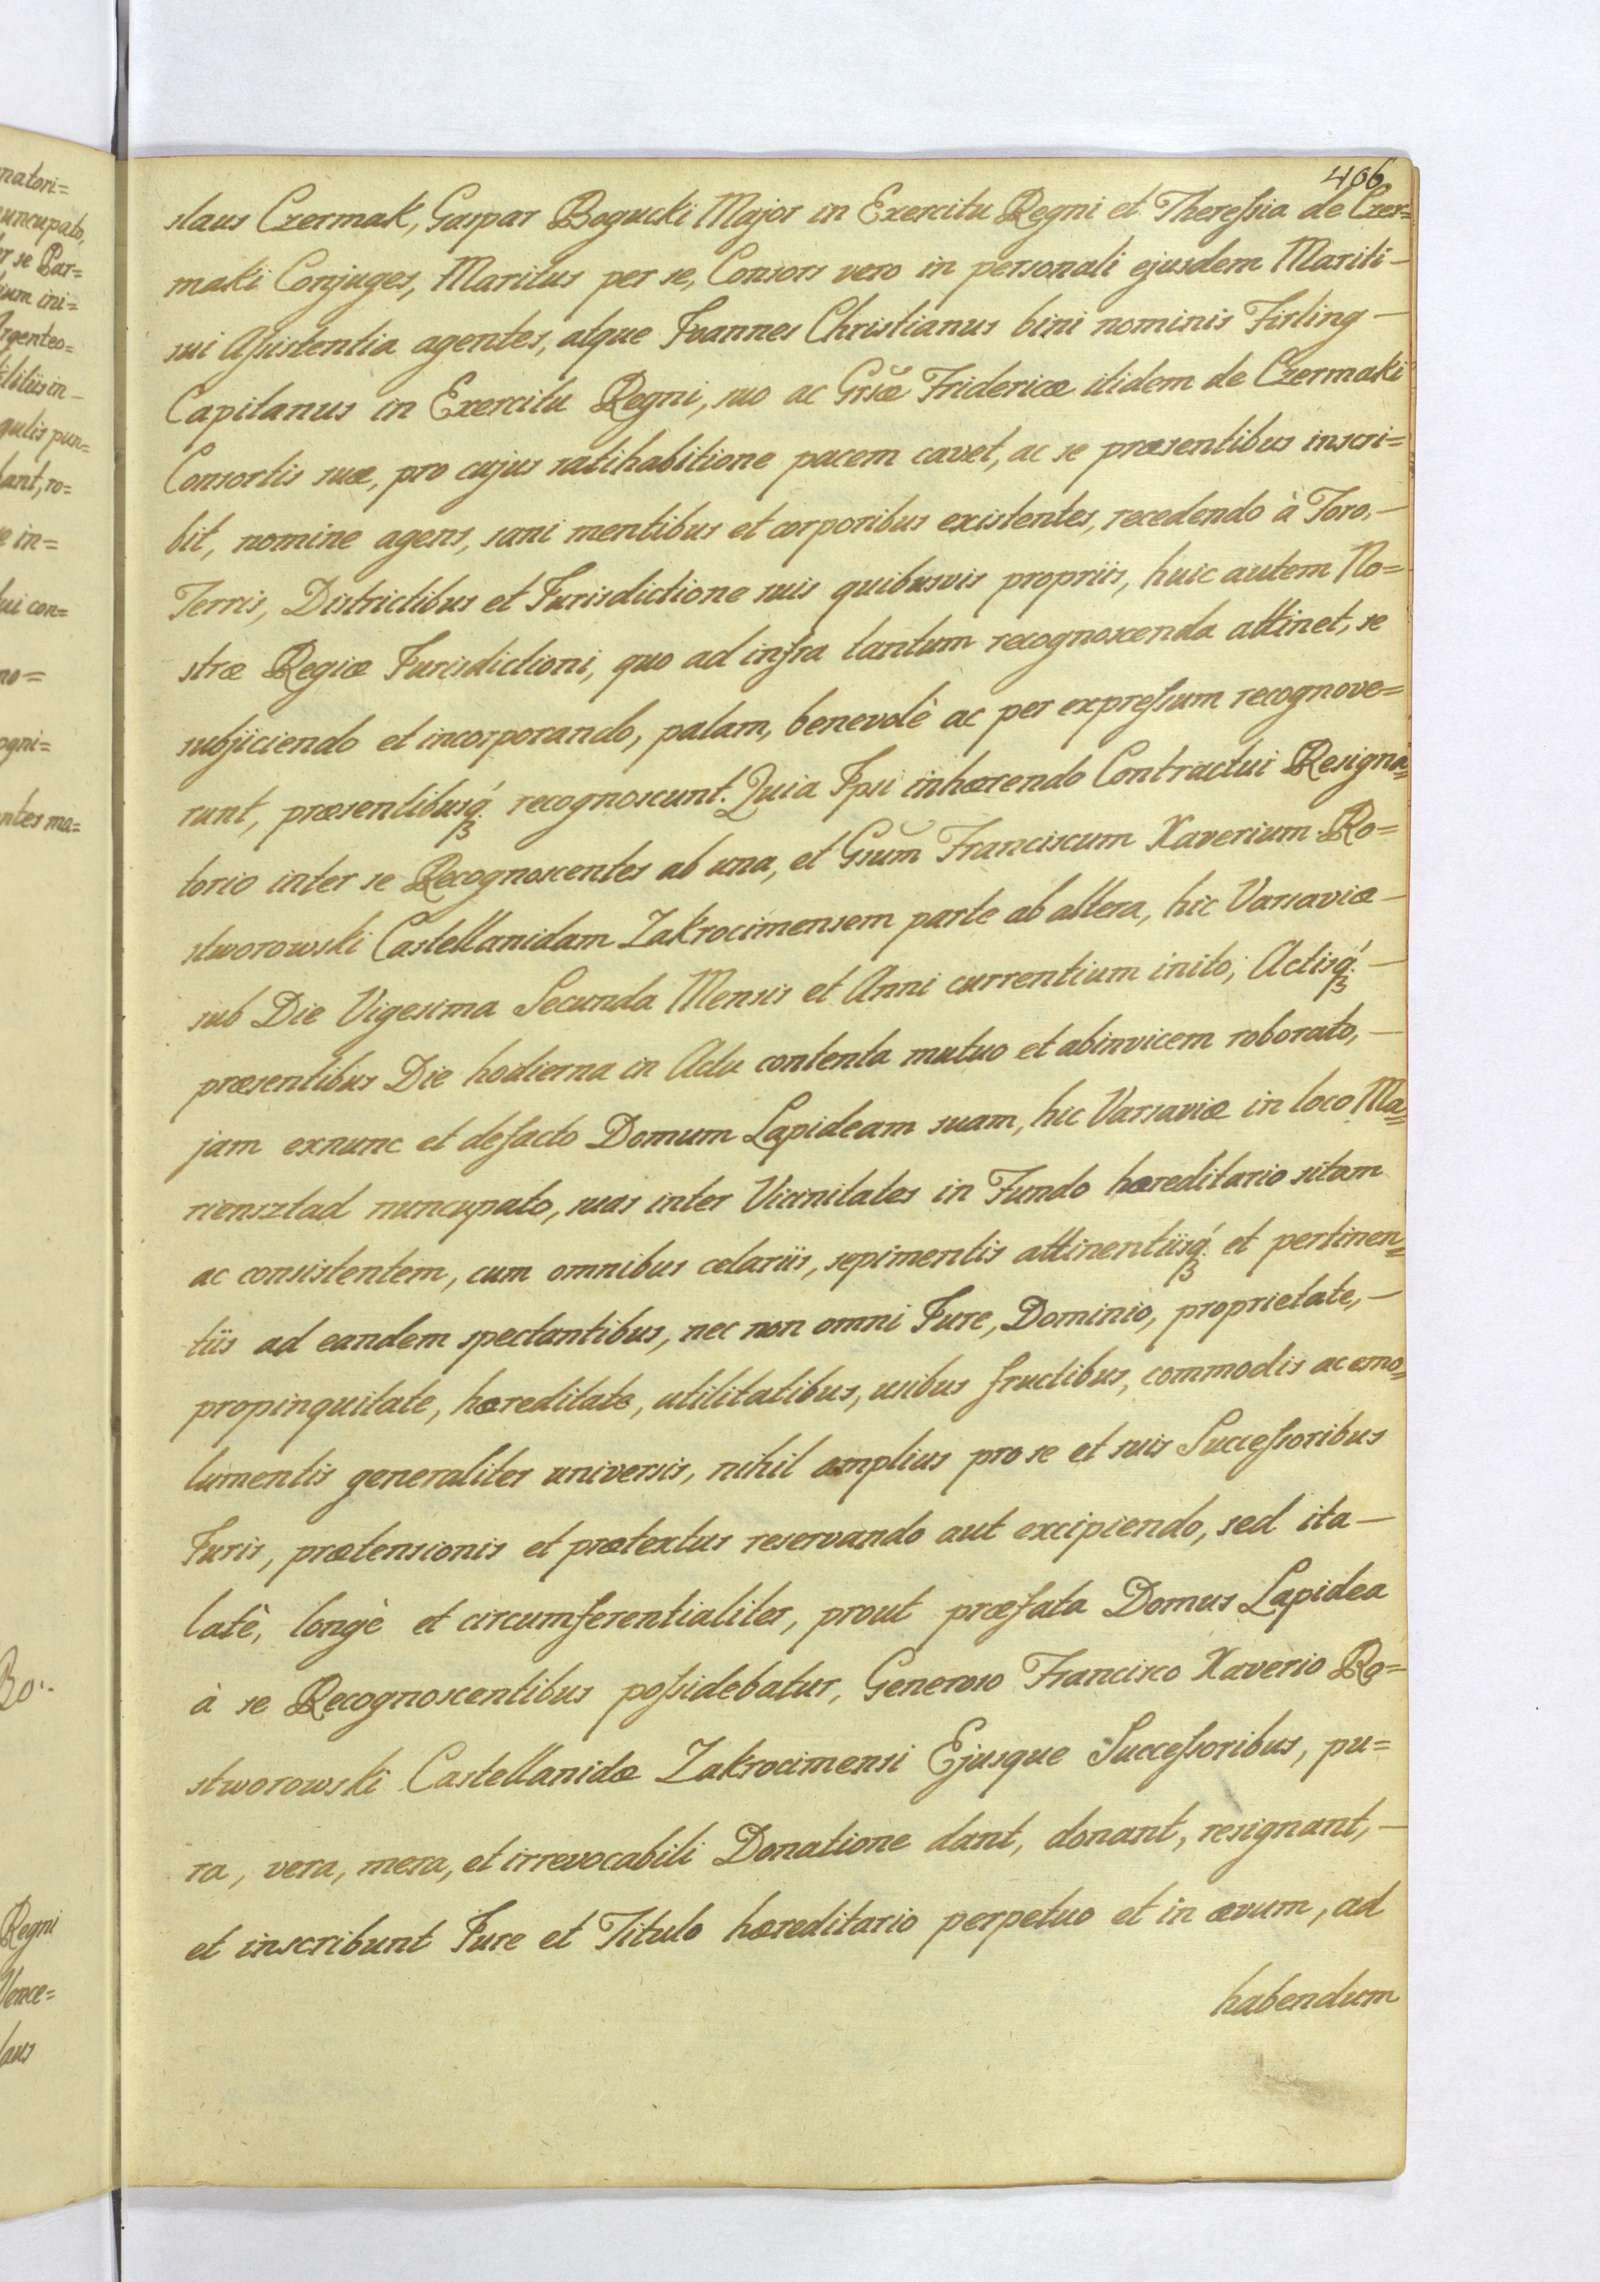 natori=
uncupato,
r se Par=
ium ini=
Argenteo=
litiis in -
gulis pun=
tant, ro=
e in=
ui con=
no=
ogni=
ntes ma=
Bo..
Regni
Vence=
laus
406
slaus Czermak, Gaspar Bogucki Major in Exercitu Regni et Theresia de Czer=
maki Conjuges, Maritus per se, Consors vero in personali ejusdem Mariti -
sui Assistentia agentes, atque Joannes Christianus bini nominis Firling -
Capitanus in Exercitu Regni, suo ac Grsæ Fridericæ itidem de Czermaki
Consortis suæ, pro cujus ratihabitione pacem cavet, ac se præsentibus inscri=
bit, nomine agens, sani mentibus et corporibus existentes, recedendo à Foro, -
Terris, Districtibus et Jurisdictione suis quibusvis propriis, huic autem No=
stræ Regiæ Jurisdictioni, quo ad infra tantum recognoscenda attinet, se
subjiciendo et incorporando, palam, benevolè ac per expressum recognove=
runt, præsentibusq́ʒ recognoscunt. Quia Ipsi inhærendo Contractui Resigna=
torio inter se Recognoscentes ab una, et Gsum Franciscum Xaverium Ro=
stworowski Castellanidam Zakrocimensem parte ab altera, hic Varsaviæ -
sub Die Vigesima Secunda Mensis et Anni currentium inito, Actisq́ʒ -
præsentibus Die hodierna in Actu contenta mutuo et abinvicem roborato, -
jam exnunc et defacto Domum Lapideam suam, hic Varsaviæ in loco Ma=
riensztad nuncupato, suas inter Vicinitates in Fundo hæreditario sitam
ac consistentem, cum omnibus celariis, sepimentis attinentiisq́ʒ et pertinen=
tiis ad eandem spectantibus, nec non omni Jure, Dominio, proprietate, -
propinquitate, hæreditate, utilitatibus, usibus fructibus, commodis ac emo=
lumentis generaliter universis, nihil amplius pro se et suis Successoribus
Juris, prætensionis et prætextus reservando aut excipiendo, sed ita -
latè, longè et circumferentialiter, prout præfata Domus Lapidea
à se Recognoscentibus possidebatur, Generoso Francisco Xaverio Ro=
stworowski Castellanidæ Zakrocimensi Ejusque Successoribus, pu=
ra, vera, mera, et irrevocabili Donatione dant, donant, resignant, -
et inscribunt Jure et Titulo hæreditario perpetuo et in ævum, ad
habendum